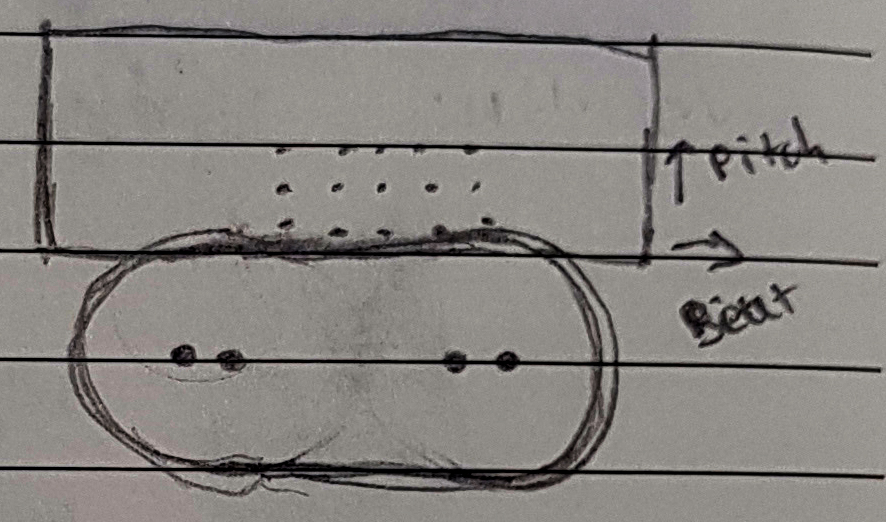 ↑ pitch
→
Beat